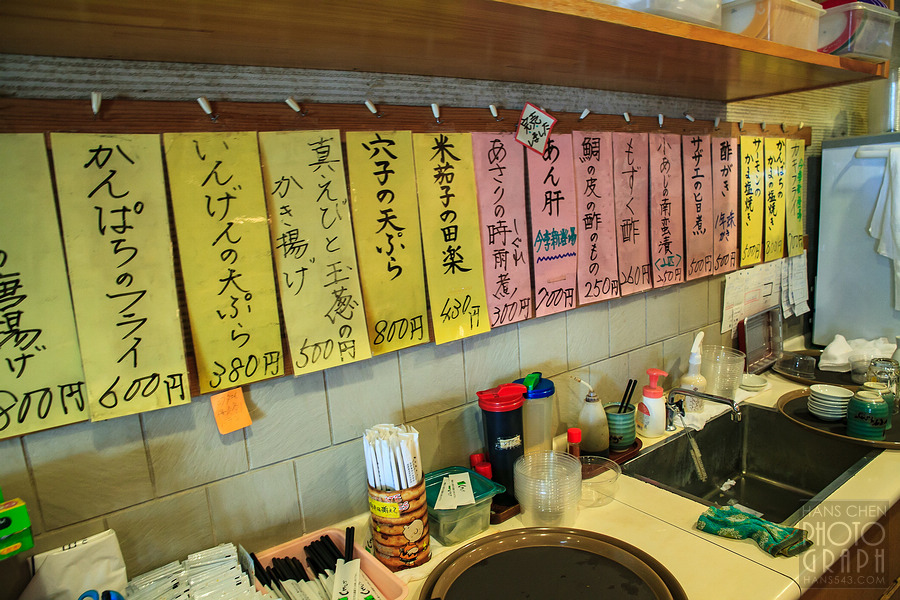 の唐揚げ
800円
かんぱちのフライ
600円
いんげんの天ぷら
380円
真えびと玉葱の
かき揚げ
500円
穴子の天ぷら
800円
米茄子の田楽
430円
あさりの時雨煮
しぐれ
300円
あん肝
今季新登場
700円
鯛の皮の酢のもの
250円
もずく酢
260円
小あじの南蛮漬
250円
サザエの旨煮
500円
酢がき
500円
サーモンの
かま塩焼き
500円
かんぱちの
かま塩焼き
800円
HANS CHEN
PHOTO
GRAPH
HANS543.COM